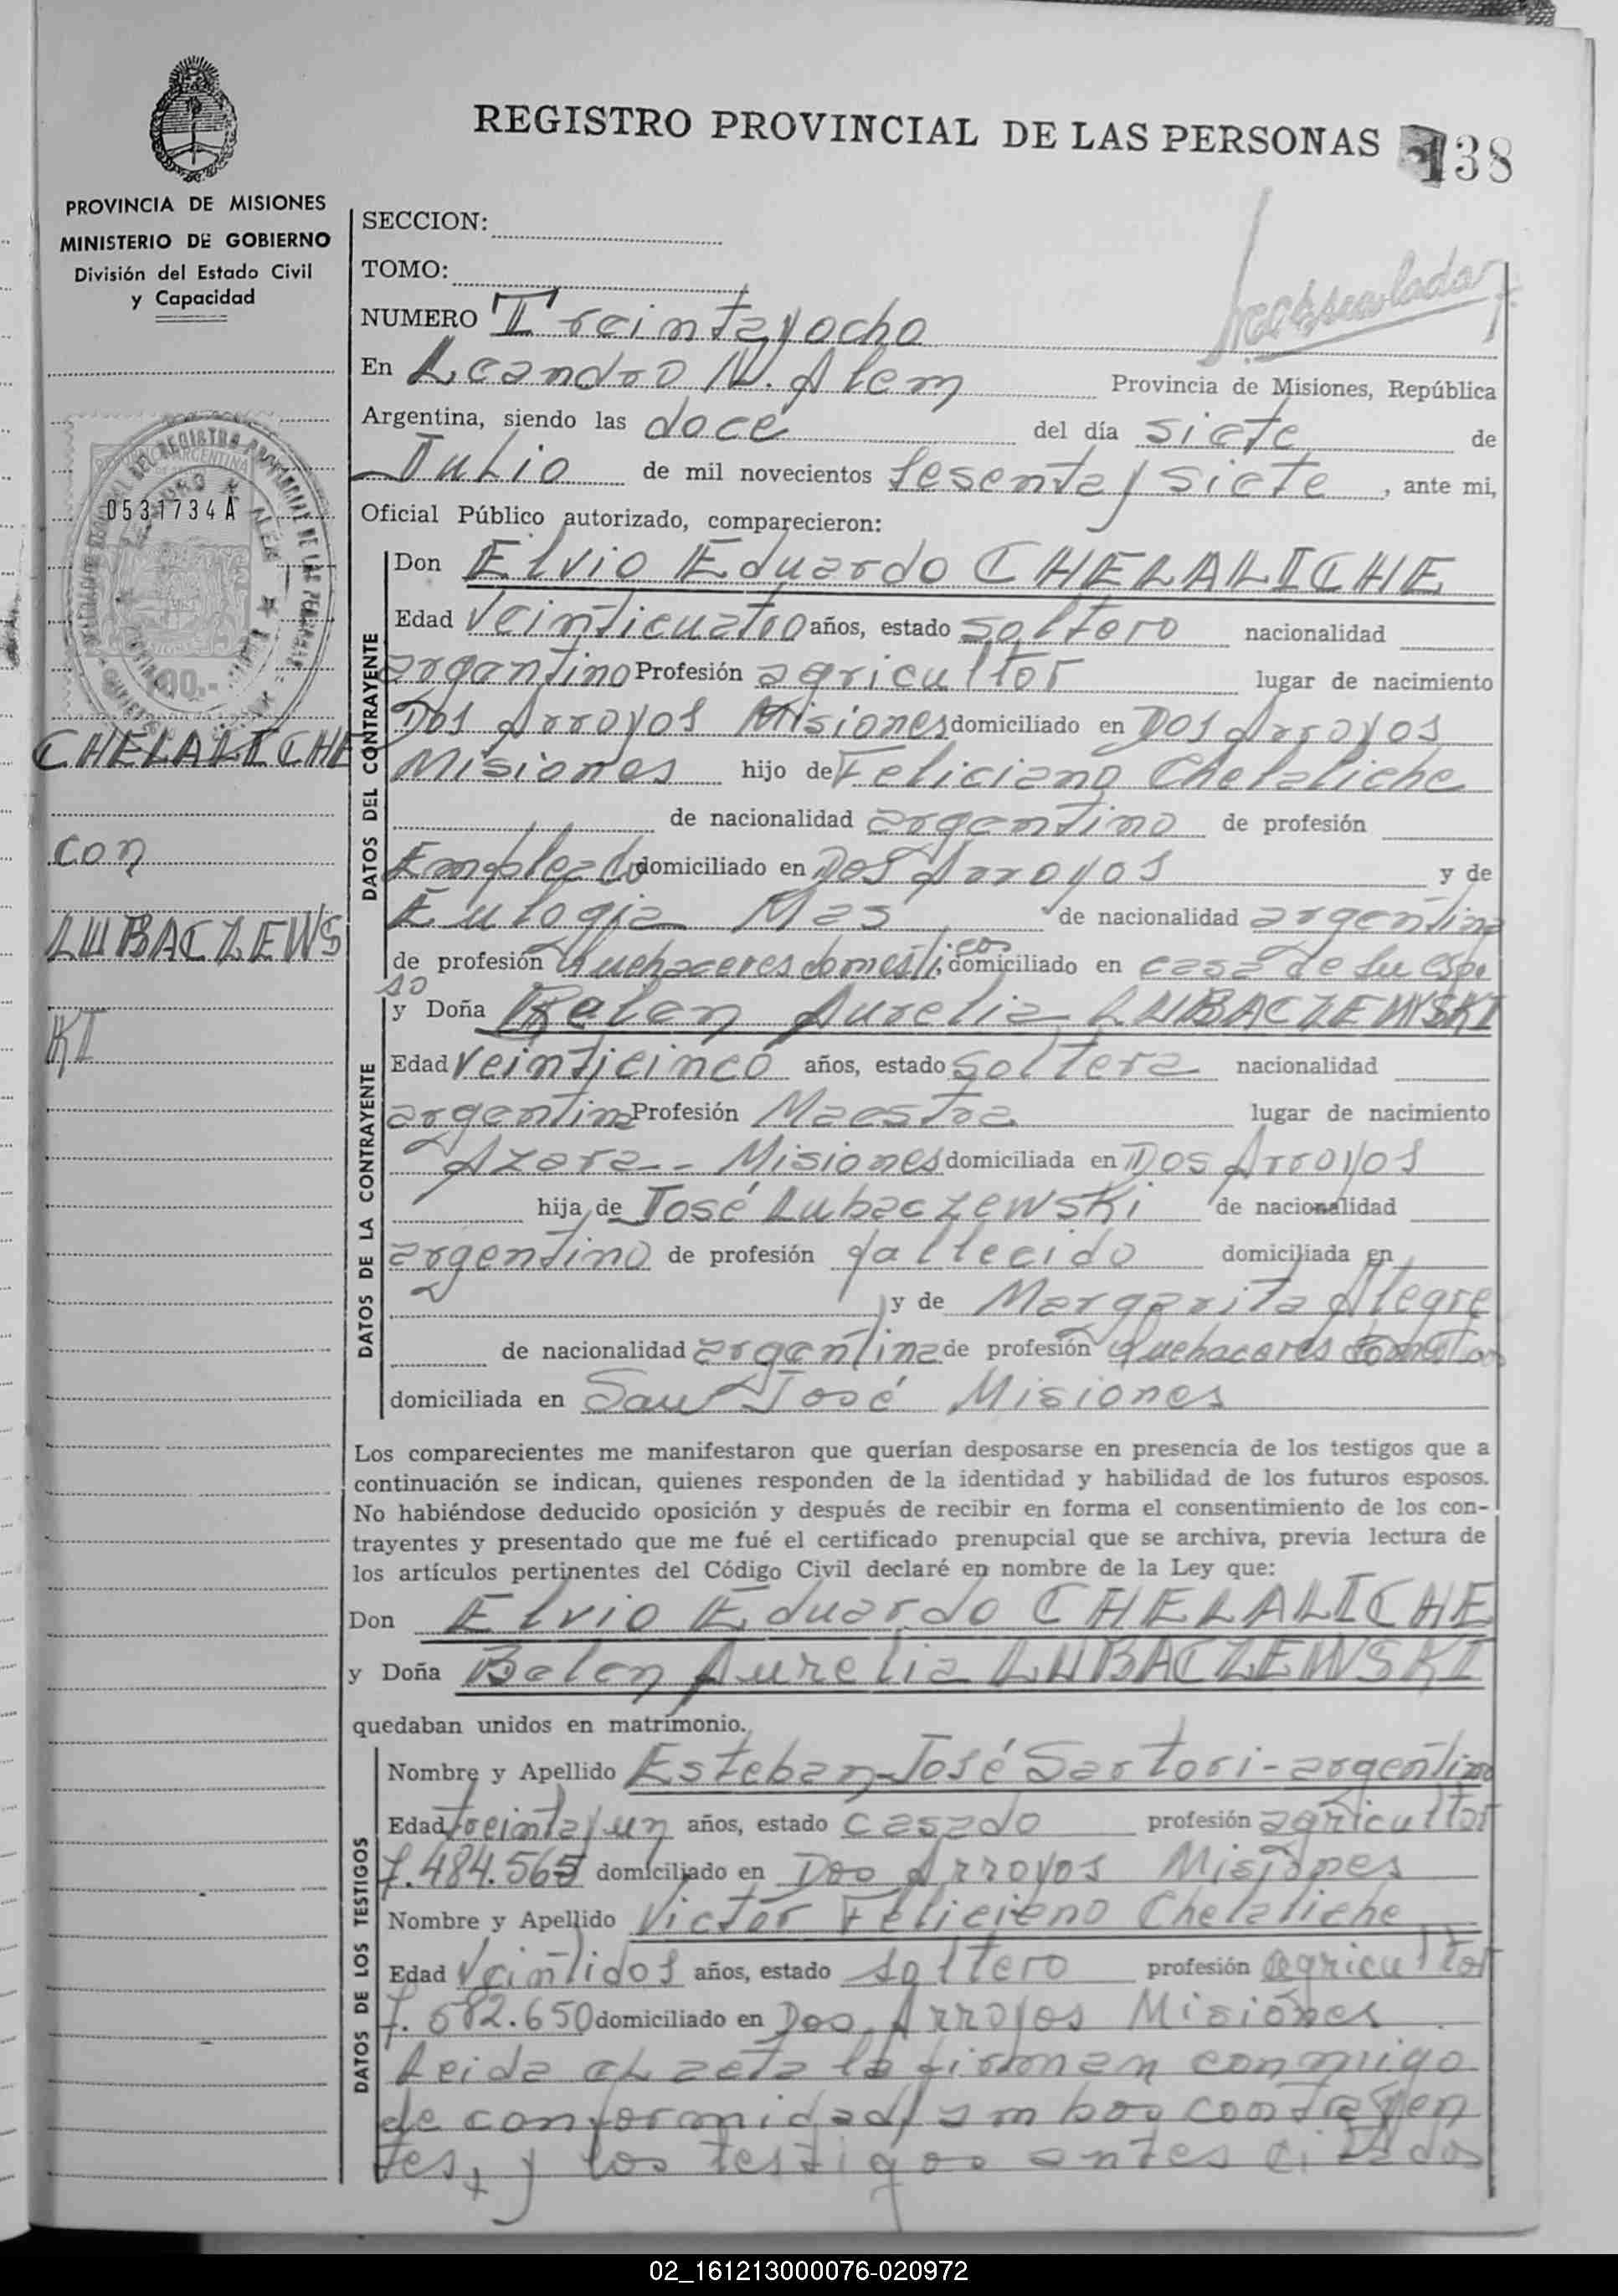 REGISTRO PROVINCIAL DE LAS PERSONAS 138
PROVINCIA DE MISIONES
MINISTERIO DE GOBIERNO
División del Estado Civil
y Capacidad
0531734A
100.-
CHELALICHE
con
LUBACZEWS
KI
SECCION:
TOMO:
NUMERO Treintayocho
En Leandro N. Alem Provincia de Misiones, República
Argentina, siendo las doce del día siete de
Julio de mil novecientos sesenta y siete, ante mi,
Oficial Público autorizado, comparecieron:
DATOS DEL CONTRAYENTE
Don Elvio Eduardo CHELALICHE
Edad Veinticuatro años, estado soltero nacionalidad
argentino Profesión agricultor lugar de nacimiento
Dos Arroyos Misiones domiciliado en Dos Arroyos
Misiones hijo de Feliciano Chelaliche
de nacionalidad argentino de profesión
Empleado domiciliado en Dos Arroyos y de
Eulogia Mas de nacionalidad argentina
de profesión Quehaceres domesticos domiciliado en casa de su espo
so
DATOS DE LA CONTRAYENTE
y Doña Belen Aurelia LUBACZEWSKI
Edad Veinticinco años, estado soltera nacionalidad
argentina Profesión Maestra lugar de nacimiento
Azara - Misiones domiciliada en Dos Arroyos
hija de José Lubaczewski de nacionalidad
argentino de profesión fallecido domiciliada en
y de Margarita Alegre
de nacionalidad argentina de profesión Quehaceres
domiciliada en San José Misiones
Los comparecientes me manifestaron que querían desposarse en presencia de los testigos que a
continuación se indican, quienes responden de la identidad y habilidad de los futuros esposos.
No habiéndose deducido oposición y después de recibir en forma el consentimiento de los con-
trayentes y presentado que me fué el certificado prenupcial que se archiva, previa lectura de
los artículos pertinentes del Código Civil declaré en nombre de la Ley que:
Don Elvio Eduardo CHELALICHE
y Doña Belen Aurelia LUBACZEWSKI
quedaban unidos en matrimonio.
DATOS DE LOS TESTIGOS
Nombre y Apellido Esteban José Sartori - argentino
Edad treintayun años, estado casado profesión agricultor
7.484.565 domiciliado en Dos Arroyos Misiones
Nombre y Apellido Victor Feliciano Chelaliche
Edad Veintidos años, estado soltero profesión agricultor
7.582.650 domiciliado en Dos Arroyos Misiones
Leida el acta la firman conmigo
de conformidad, ambos contrayen
tes, y los testigos antes citados
02_161213000076-020972